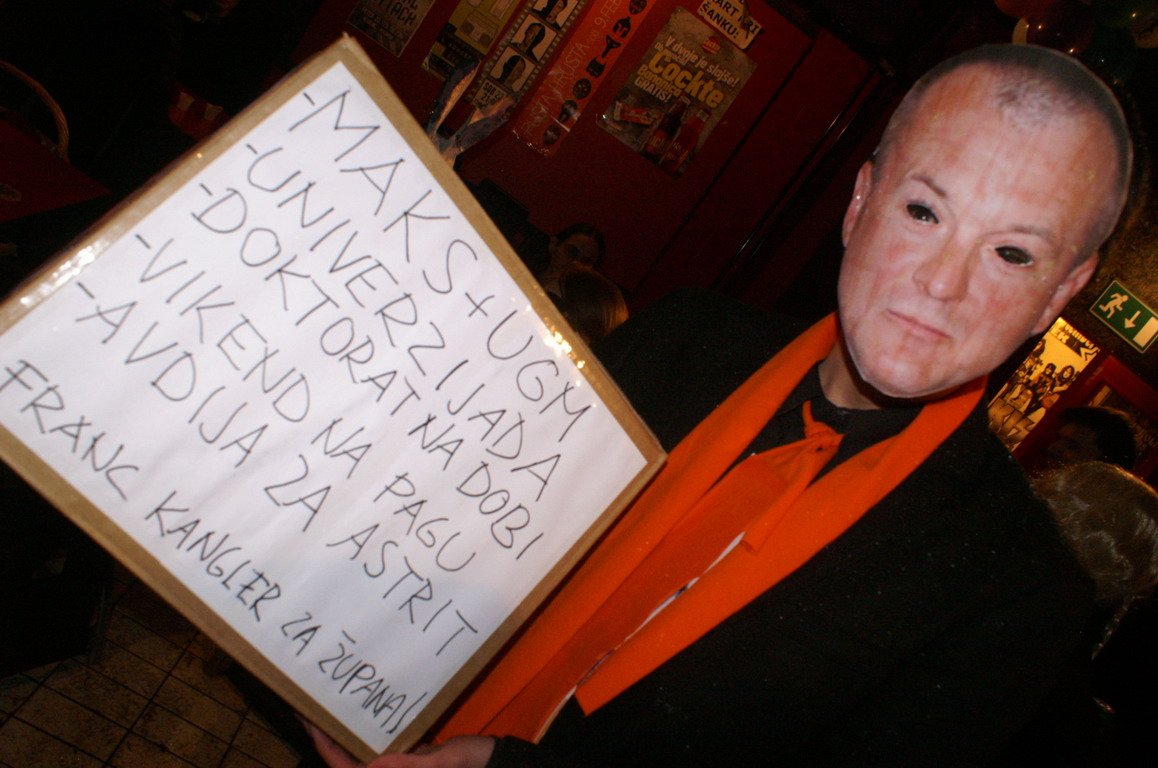 -MAKS+UGM
-UNIVERZIJADA
-DOKTORAT NA DOBI
-VIKEND NA PAGU
-AVDIJA ZA ASTRIT
FRANC KANGLER ZA ŽUPANA!
ŠANKU:
Cockte
GRATIS!